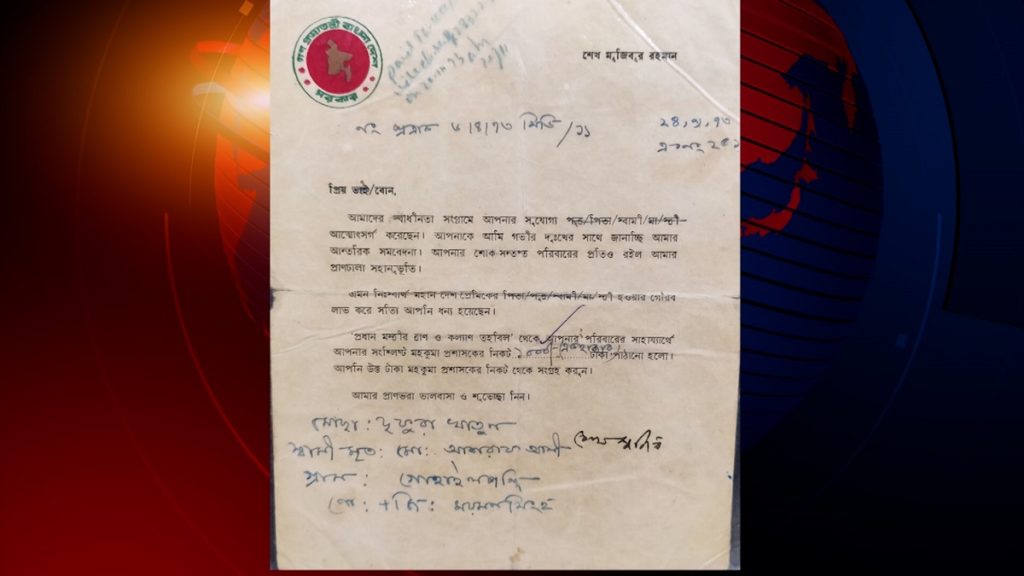 গণ প্রজাতন্ত্রী বাংলাদেশ
সরকার
শেখ মুজিবুর রহমান
নং প্রত্রাক ৬।৪।৭৩ সিডি/
প্রিয় ভাই/বোন,
আমাদের স্বাধীনতা সংগ্রামে আপনার সুযোগ্য পুত্র/পিতা/স্বামী/মা/স্ত্রী
আত্মোৎসর্গ করেছেন। আপনাকে আমি গভীর দুঃখের সাথে জানাচ্ছি আমার
আন্তরিক সমবেদনা। আপনার শোক-সন্তপ্ত পরিবারের প্রতিও রইল আমার
প্রাণঢালা সহানুভূতি।
এমন নিঃস্বার্থ মহান দেশপ্রেমিকের পিতা/পুত্র/স্বামী/মা/স্ত্রী হওয়ার গৌরব
লাভ করে সত্যি আপনি ধন্য হয়েছেন।
'প্রধান মন্ত্রীর ত্রাণ ও কল্যাণ তহবিল' থেকে আপনার পরিবারের সাহায্যার্থে
আপনার সংশ্লিষ্ট মহকুমা প্রশাসকের নিকট টাকা পাঠানো হলো।
আপনি উক্ত টাকা মহকুমা প্রশাসকের নিকট থেকে সংগ্রহ করুন।
আমার প্রাণভরা ভালবাসা ও শুভেচ্ছা নিন।
মোছা: খাতুন
শেখ মুজিব
স্বামী মৃত: মো: আশরাফ আলী
গ্রাম:
পো: + জি: ময়মনসিংহ